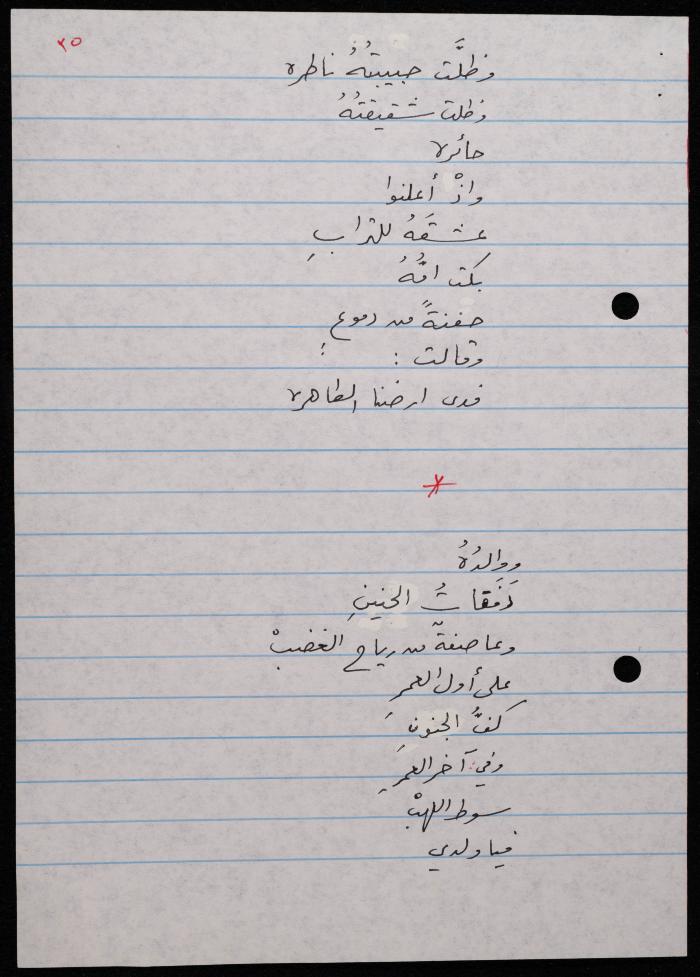 ٢٥
وظلَّت حبيبتُهُ ناطره
وظلت شقيقتُهُ
حائره
واذْ أعلنوا
عشقَهُ للترابِ
بكت امُّهُ
حفنةً من دموعٍ
وقالت :
فدى ارضنا الطاهره
*
ووالدُهُ
دَفَقاتُ الحنينِ
وعاصفةٌ من رياح الغضبْ
على أول العمرِ
كفُّ الجنونِ
وفي آخر العمرِ
سوط اللهبْ
فيا ولدي